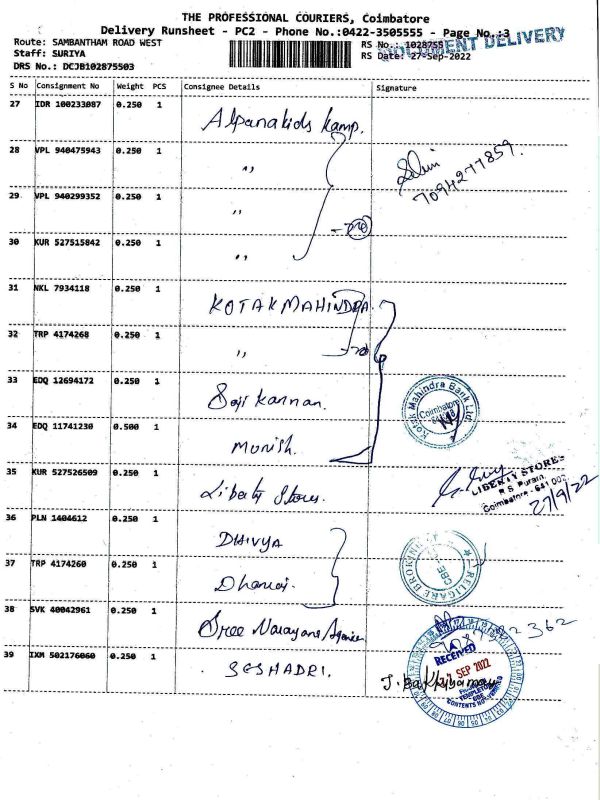 THE PROFESSIONAL COURIERS, Coimbatore
Delivery Runsheet - PC2 - Phone No.:0422-3505555 - Page No.:3
Route: SAMBANTHAM ROAD WEST
RS No.: 1028755
DOCUMENT DELIVERY
Staff: SURIYA
RS Date: 27-Sep-2022
DRS No.: DCJB102875503
S No Consignment No Weight PCS Consignee Details Signature
27 IDR 100233087 0.250 1 Alpanakids Kamp.
28 VPL 940475943 0.250 1 ,,
7094277859.
29 VPL 940299352 0.250 1 ,,
30 KUR 527515842 0.250 1 ,,
31 NKL 7934118 0.250 1 KOTAK MAHINDRA
32 TRP 4174268 0.250 1 ,,
33 EDQ 12694172 0.250 1 Saji Kannan.
Kotak Mahindra Bank Ltd.
Coimbatore
34 EDQ 11741230 0.500 1 Monish.
35 KUR 527526509 0.250 1 Liberty Stores.
LIBERTY STORES
R S Puram,
Coimbatore - 641 002
27/9/22
36 PLN 1404612 0.250 1 DHIVYA
37 TRP 4174260 0.250 1 Dhanraj.
RELIGARE BROKING
CBE
38 SVK 40042961 0.250 1 Sree Narayana Agencies
39 IXM 502176060 0.250 1 SESHADRI.
RECEIVED
27 SEP 2022
CONTENTS NOT VERIFIED